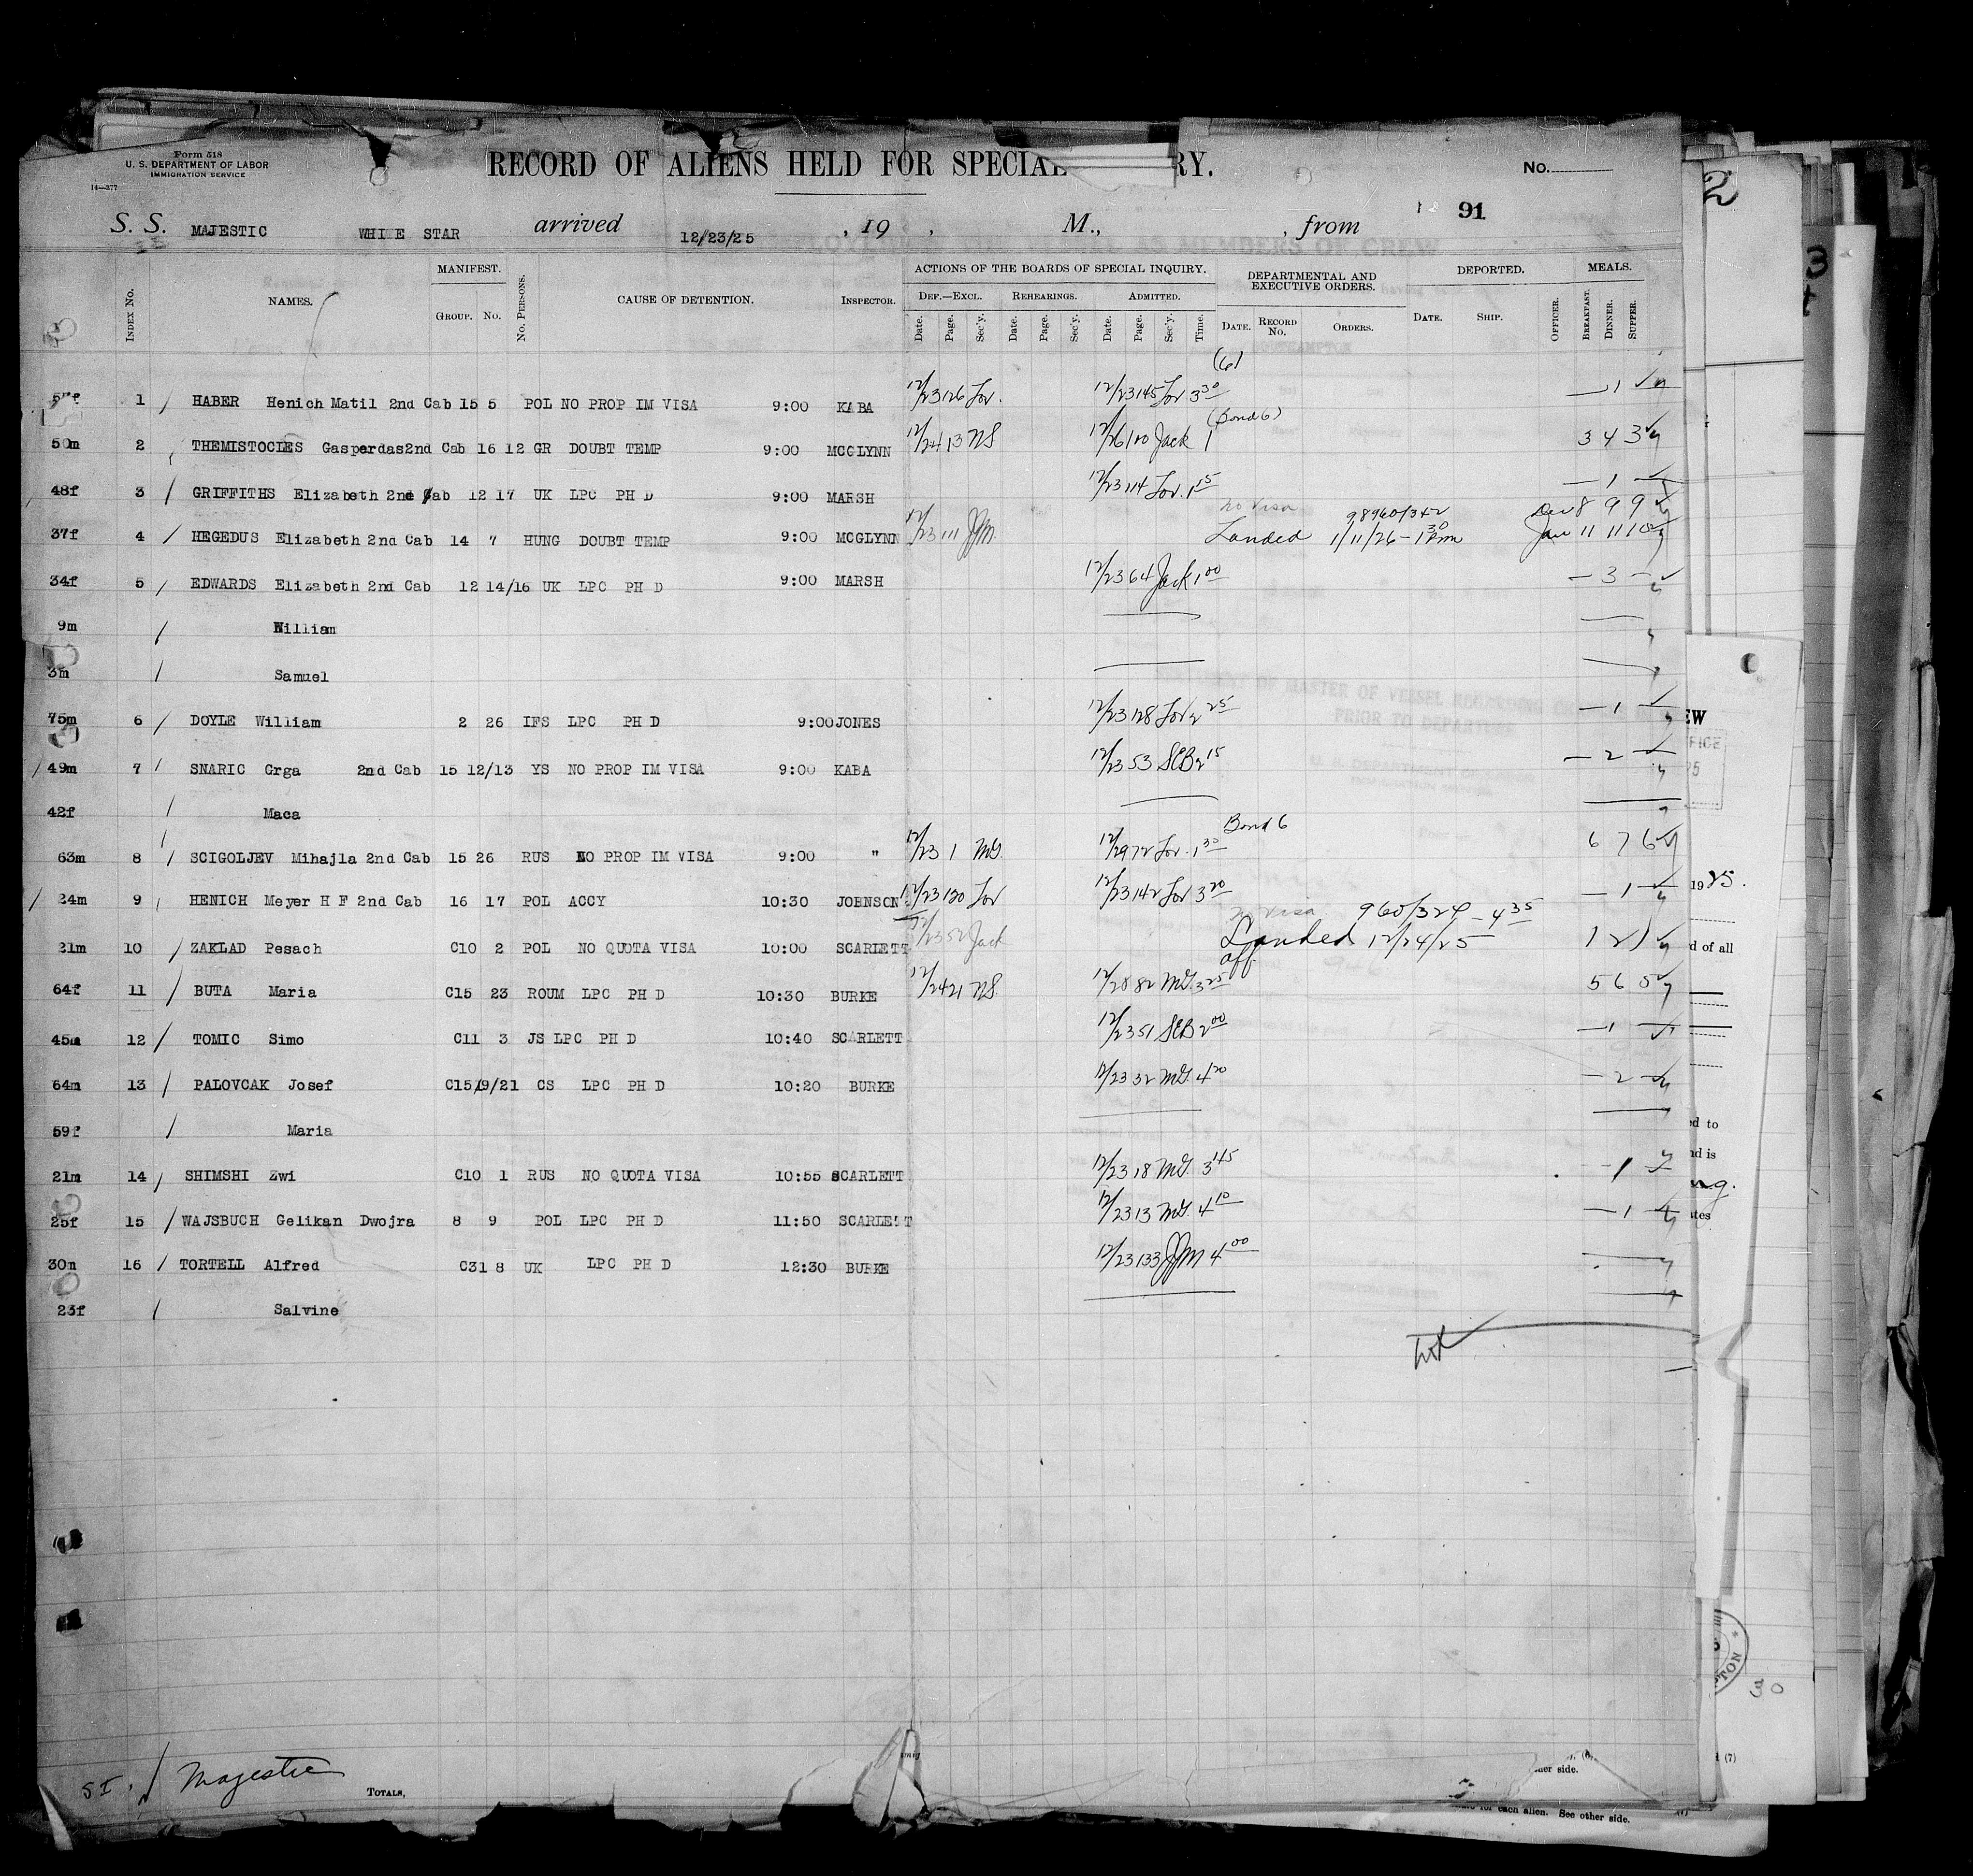 Form 518
U. S. DEPARTMENT OF LABOR
IMMIGRATION SERVICE
14—377
RECORD OF ALIENS HELD FOR SPECIAL RY.
No.
S. S. MAJESTIC WHITE STAR arrived 12/23/25 , 19 , M., , from 91
Index No. NAMES. MANIFEST. Group. No. No. Persons. CAUSE OF DETENTION. Inspector. ACTIONS OF THE BOARDS OF SPECIAL INQUIRY. DEPARTMENTAL AND EXECUTIVE ORDERS. DEPORTED. MEALS.
Def.—Excl. Rehearings. Admitted.
Date. Page. Sec'y. Date. Page. Sec'y. Date. Page. Sec'y. Time. Date. Record No. Orders. Date. Ship. Officer. Breakfast. Dinner. Supper.
(6)
1 / HABER Henich Matil 2nd Cab 15 5 POL NO PROP IM VISA 9:00 KABA 12/23 126 Lov. 12/23 145 Lov 3 30 — 1
(Bond 6)
50m 2 THEMISTOCLES Gasperdas 2nd Cab 16 12 GR DOUBT TEMP 9:00 MCGLYNN 12/24 13 NS 12/26 100 Jack 1 3 4 3
48f 3 / GRIFFITHS Elizabeth 2nd Cab 12 17 UK LPC PH D 9:00 MARSH 12/23 114 Lov. 1 15 — 1 —
no visa 98960/342 Dec 8 9 9
37f 4 / HEGEDUS Elizabeth 2nd Cab 14 7 HUNG DOUBT TEMP 9:00 MCGLYNN 12/23 111 JJM. Landed 1/11/26 - 1 30 pm Jan 11 11 10
34f 5 / EDWARDS Elizabeth 2nd Cab 12 14/16 UK LPC PH D 9:00 MARSH 12/23 64 Jack 1 00 — 3 —
9m / William
3m / Samuel
75m 6 / DOYLE William 2 26 IFS LPC PH D 9:00 JONES 12/23 128 Lov 2 25 — 1 —
/ 49m 7 / SNARIC Grga 2nd Cab 15 12/13 YS NO PROP IM VISA 9:00 KABA 12/23 53 SEB 2 15 — 2 —
42f / Maca
Bond 6
63m 8 / SCIGOLJEV Mihajla 2nd Cab 15 26 RUS NO PROP IM VISA 9:00 " 12/23 1 MG. 12/29 72 Lov. 1 30 6 7 6
/ 24m 9 / HENICH Meyer H F 2nd Cab 16 17 POL ACCY 10:30 JOHNSON 12/23 120 Lov 12/23 142 Lov 3 20 — 1 —
no visa 960/324 - 4 35
21m 10 / ZAKLAD Pesach C10 2 POL NO QUOTA VISA 10:00 SCARLETT 12/23 52 Jack Landed 12/24/25 1 2 1
off
64f 11 / BUTA Maria C15 23 ROUM LPC PH D 10:30 BURKE 12/24 21 NS. 12/28 82 MG. 3 25 5 6 5
45m 12 / TOMIC Simo C11 3 JS LPC PH D 10:40 SCARLETT 12/23 51 SEB 2 00 — 1 —
64m 13 / PALOVCAK Josef C15 19/21 CS LPC PH D 10:20 BURKE 12/23 32 MG. 4 20 — 2 —
59f / Maria
21m 14 / SHIMSHI Zwi C10 1 RUS NO QUOTA VISA 10:55 SCARLETT 12/23 18 MG. 3 45 — 1 —
25f 15 / WAJSBUCH Gelikan Dwojra 8 9 POL LPC PH D 11:50 SCARLETT 12/23 13 MG. 4 10 — 1 —
30m 16 / TORTELL Alfred C31 8 UK LPC PH D 12:30 BURKE 12/23 133 JJM 4 00
23f / Salvine
SI. / Majestic
Totals,
her side.
for each alien. See other side.
2
3
EW
FICE
1925.
d of all
ed to
nd is
ng.
ates
PTON
30
(7)